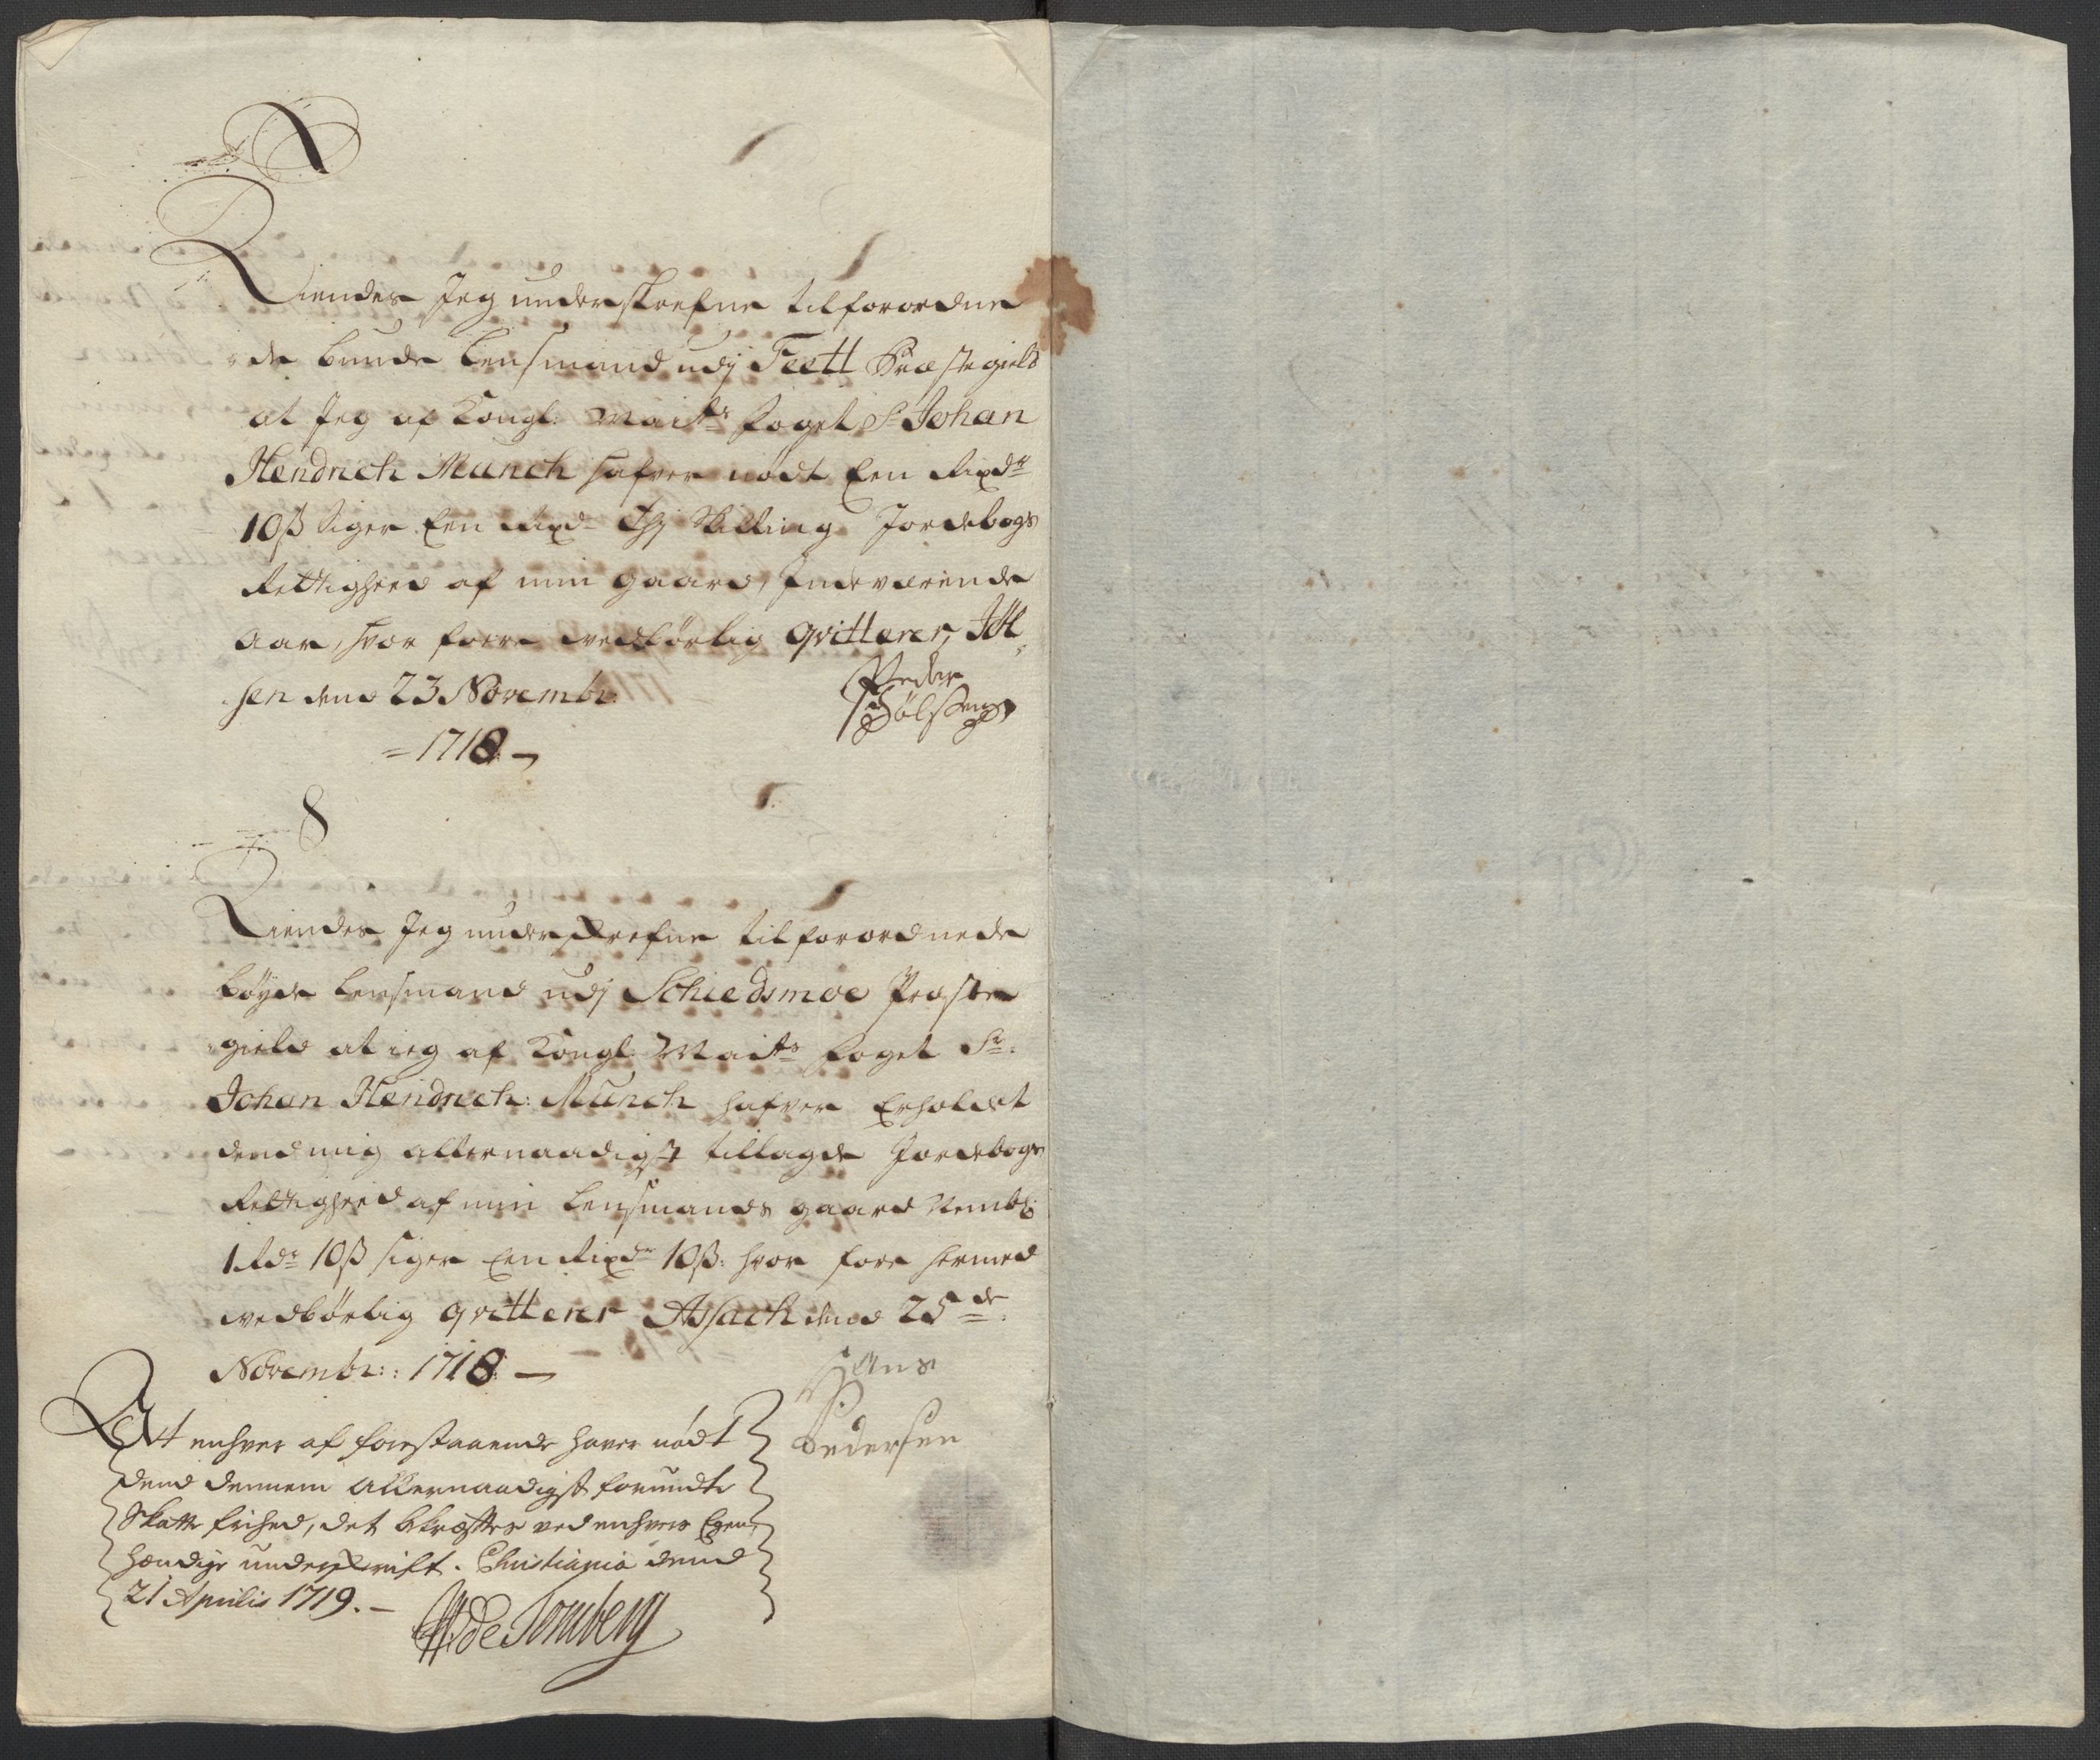 Kiendes Jeg underskrefne tilforordne
de bunde Lensmand udj Feett Præstegield
at Jeg af Kongl: Mai.ts foget Sr Johan
Hendrich Munch hafver nødt Een Rixdr
10ß siger Een Rixd Thj Skilling Jordebogs
Rettigheed af min gaard, Indeværende
Aar, hvor fore vedbørlig qvitterer,
sen dend 23 Novembr:
Peder
= 1718 –
8
Kiendes Jeg underskrefne tilforordnede
bøyde Lensmand udj Schiedsmoe Præste
gield at ieg af Kongl Mai.ts foget Sr:
Johan Hendrich: Munch hafver Erholdet
dend mig allernaadigst tillagde Jordebogs
Rettigheed af min Lensmands gaard Nembl:
1 Rdr 10ß siger Een Rixdr 10ß: hvor fore hermed
vedbørlig qvitterer Assach dend 25de
Novembr:: 1718 –
Hans
Pedersen
At enhver af forestaaende haver nødt
dend dennem allernaadigst forundte
Skatte frihed, det bekræftes ved enhvers Egen-
hændige underskrift. Christiania dend
21 Aprilis 1719. –
de Tonsberg